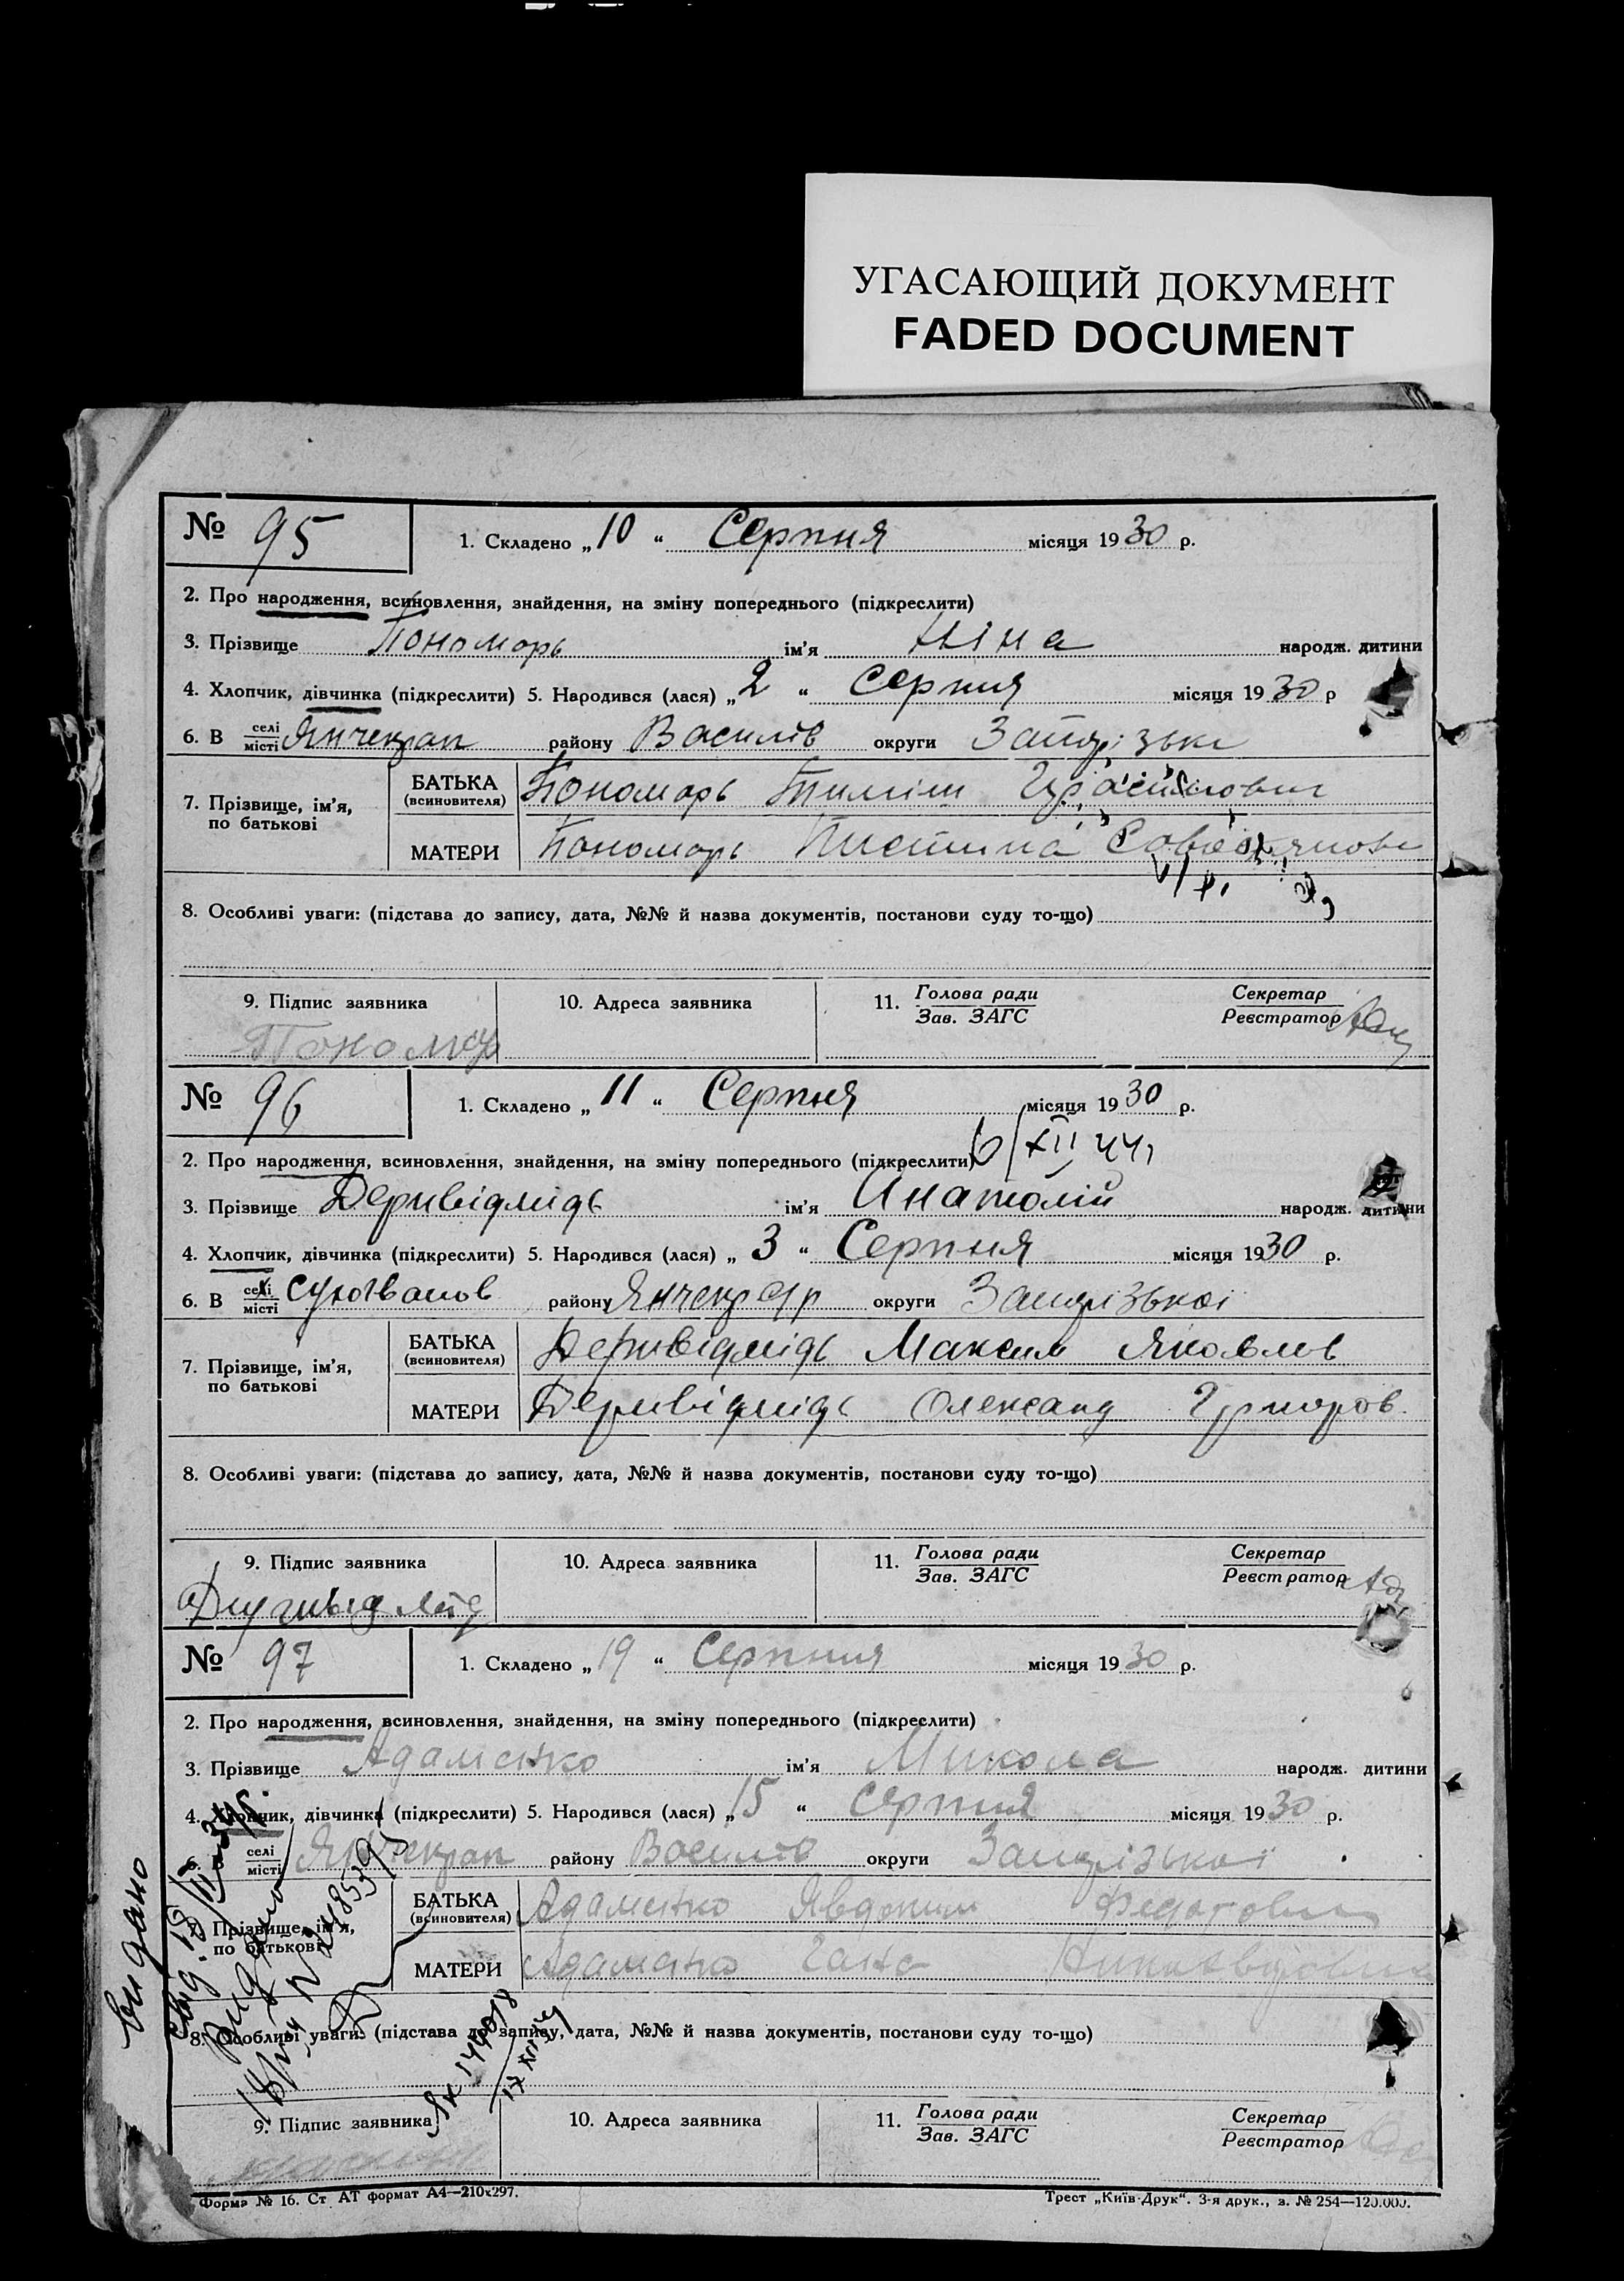 УГАСАЮЩИЙ ДОКУМЕНТ
FADED DOCUMENT
№ 95
1. Складено „10“ Серпня місяця 1930 р.
2. Про народження, всиновлення, знайдення, на зміну попереднього (підкреслити)
3. Прізвище Пономарь ім'я Ніна народж. дитини
4. Хлопчик, дівчинка (підкреслити) 5. Народився (лася) „2“ Серпня місяця 1930 р
6. В селі/місті Янчекрап району Василів округи Запорізьк
7. Прізвище, ім'я, по батькові
БАТЬКА (всиновителя) Пономарь
МАТЕРИ Пономарь
8. Особливі уваги: (підстава до запису, дата, №№ й назва документів, постанови суду то-що)
9. Підпис заявника 10. Адреса заявника 11. Голова ради/Зав. ЗАГС Секретар/Реєстратор
Пономар
№ 96
1. Складено „11“ Серпня місяця 1930 р.
6/XII 44
2. Про народження, всиновлення, знайдення, на зміну попереднього (підкреслити)
3. Прізвище Деривідмідь ім'я Анатолій народж. дитини
4. Хлопчик, дівчинка (підкреслити) 5. Народився (лася) „3“ Серпня місяця 1930 р.
6. В селі/місті району округи Запорізької
7. Прізвище, ім'я, по батькові
БАТЬКА (всиновителя) Деривідмідь Максим Яковлев
МАТЕРИ Деривідмідь Олександ
8. Особливі уваги: (підстава до запису, дата, №№ й назва документів, постанови суду то-що)
9. Підпис заявника 10. Адреса заявника 11. Голова ради/Зав. ЗАГС Секретар/Реєстратор
№ 97
1. Складено „19“ Серпння місяця 1930 р.
2. Про народження, всиновлення, знайдення, на зміну попереднього (підкреслити)
3. Прізвище Адаменко ім'я Микола народж. дитини
4. Хлопчик, дівчинка (підкреслити) 5. Народився (лася) „15“ Серпня місяця 1930 р.
6. В селі/місті Янчекрап району Василів округи Запорізької
7. Прізвище, ім'я, по батькові
БАТЬКА (всиновителя) Адаменко Явдоким Федотович
МАТЕРИ Адаменко Ганна
8. Особливі уваги: (підстава до запису, дата, №№ й назва документів, постанови суду то-що)
видано
9. Підпис заявника 10. Адреса заявника 11. Голова ради/Зав. ЗАГС Секретар/Реєстратор
Форма № 16. Ст. АТ формат А4—210х297. Трест „Київ-Друк“. 3-я друк., з. № 254—120.000.